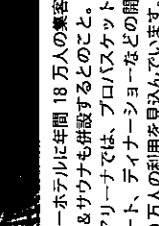 ーホテルに年間 18 万人の集客
&サウナも併設するとのこと。
アリーナでは、プロバスケット
ート、ディナーショーなどの開
0 万人の利用を見込んでいます。